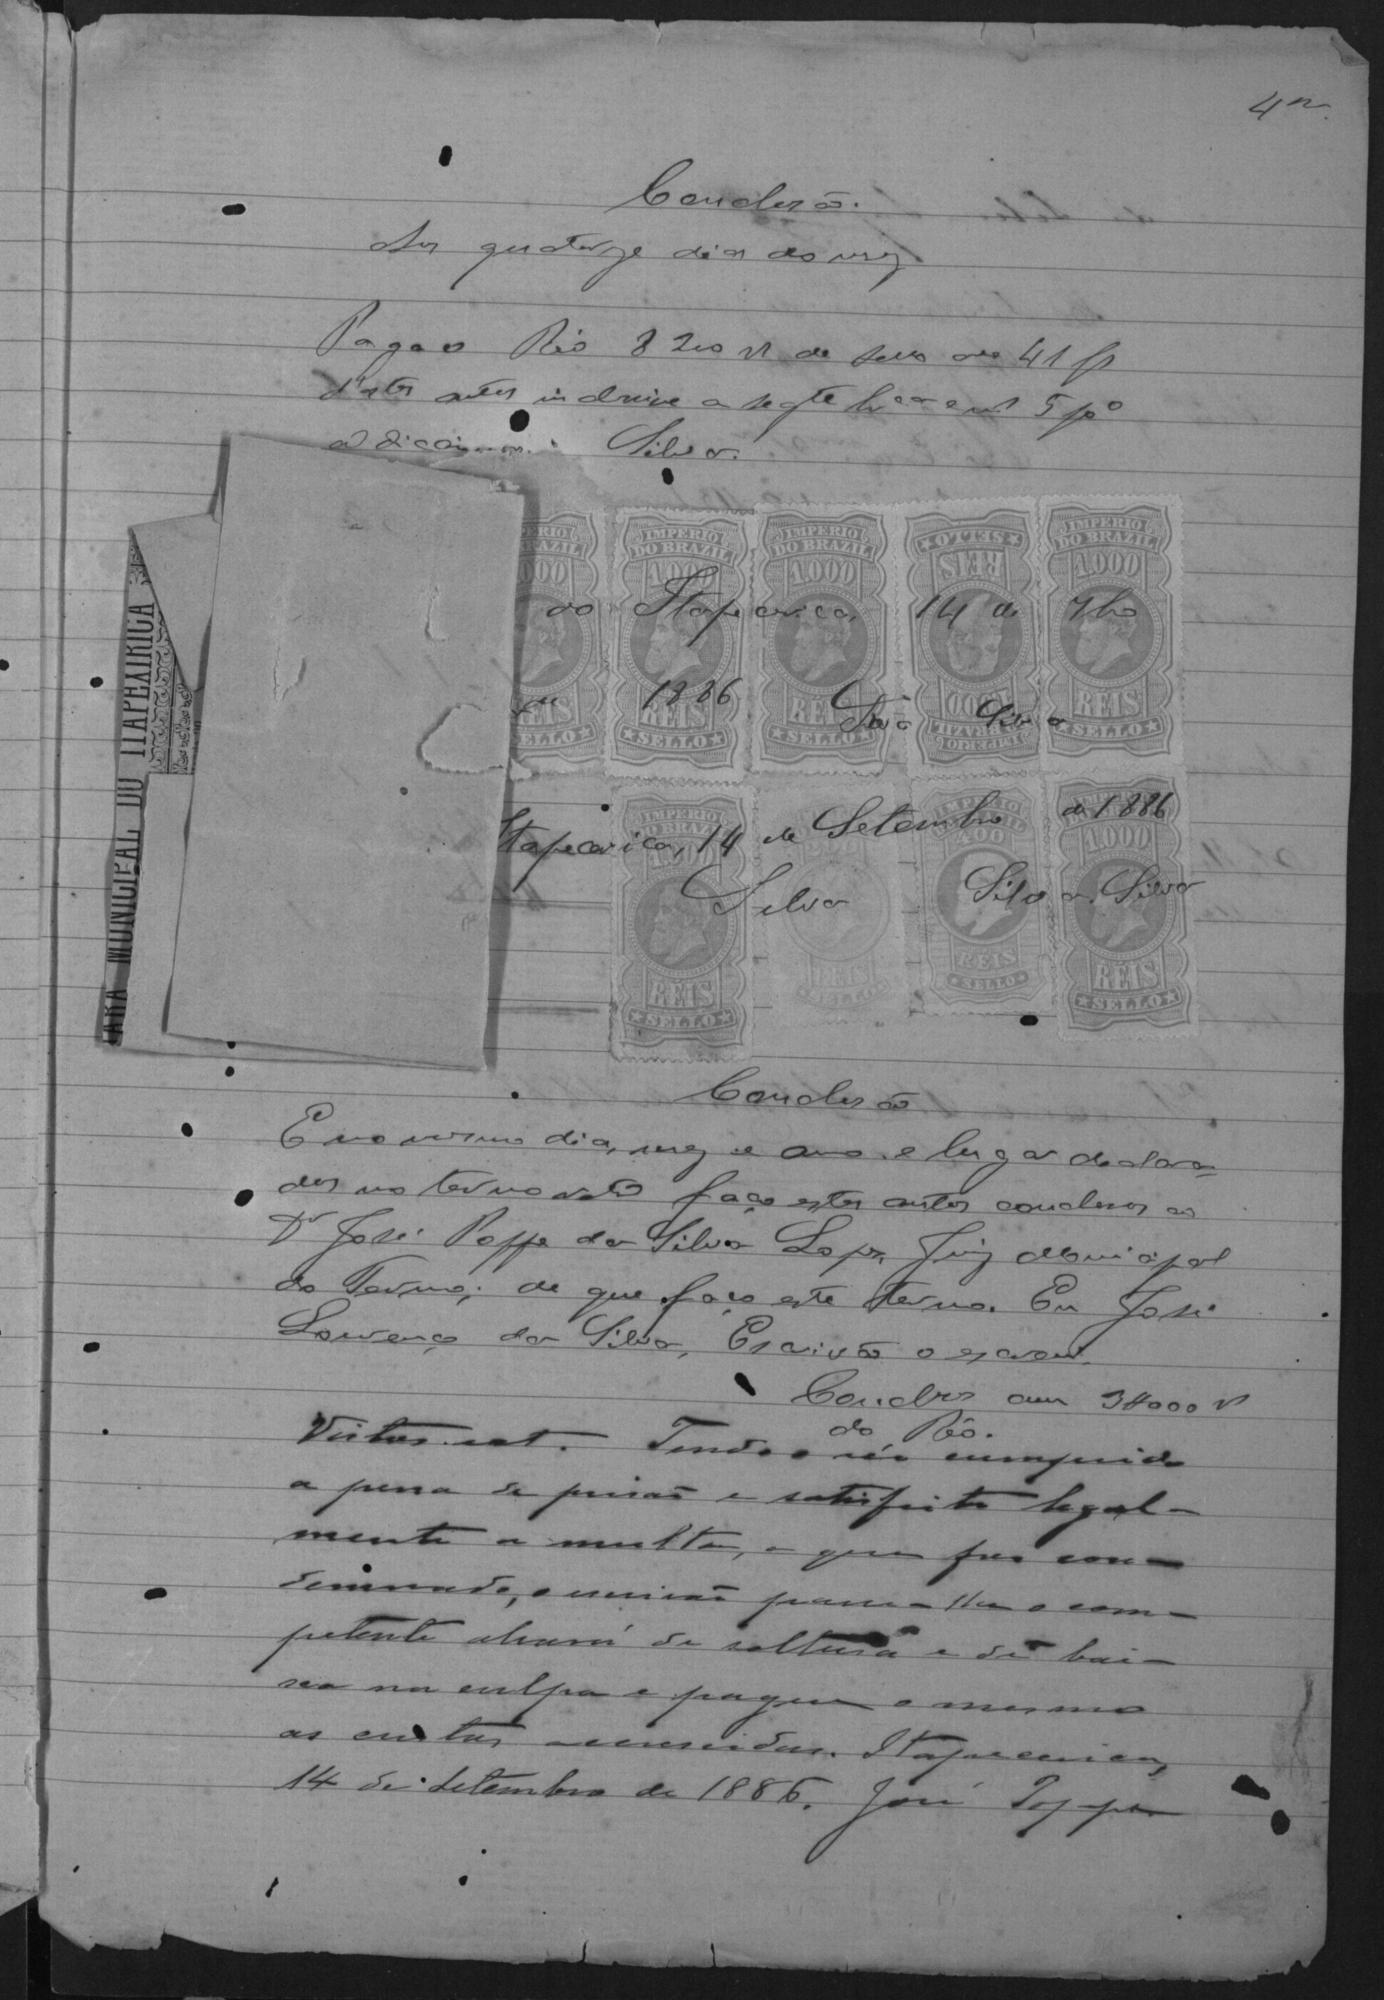 4
Concluzão.
Aos quatorze dias do mez
Paga o Réo 8 200 rs de sello de 41 fs
d'estes autos inclusive a segte br.ca e mais 5 pº
addicionaes. Silva.
IMPERIO DO BRAZIL 1.000 REIS SELLO
IMPERIO DO BRAZIL 1.000 REIS SELLO
IMPERIO DO BRAZIL 1.000 REIS SELLO
IMPERIO DO BRAZIL REIS SELLO
IMPERIO DO BRAZIL 1.000 REIS SELLO
do Itapecerica, 14 de 7bro
de 1886 Silva Silva
CAMARA MUNICIPAL DO ITAPEXIRICA
IMPERIO DO BRAZIL REIS SELLO
REIS SELLO
IMPERIO REIS SELLO
IMPERIO DO BRAZIL 1.000 REIS SELLO
Itapecerica, 14 de Setembro de 1886
Silva Silva Silva
Concluzão
E no mesmo dia, mez e anno e lugar declara-
dos no termo retro faço estes autos concluzos ao
Dr José Poppe da Silva Lopes, Juiz Municipal
do Termo; de que faço este termo. Eu José
Lourenço da Silva, Escrivão o escrevi.
Concluzos com 3#000 rs
do Réo.
Vistos, est. Tendo o réo cumprido
a pena de prisão e satisfeito legal-
mente a multa, a que foi con-
demnado, o escrivão passe-lhe o com-
petente alvará de soltura e dê bai-
xa na culpa e pague o mesmo
as custas accrescidas. Itapecerica,
14 de Setembro de 1886. José Poppe